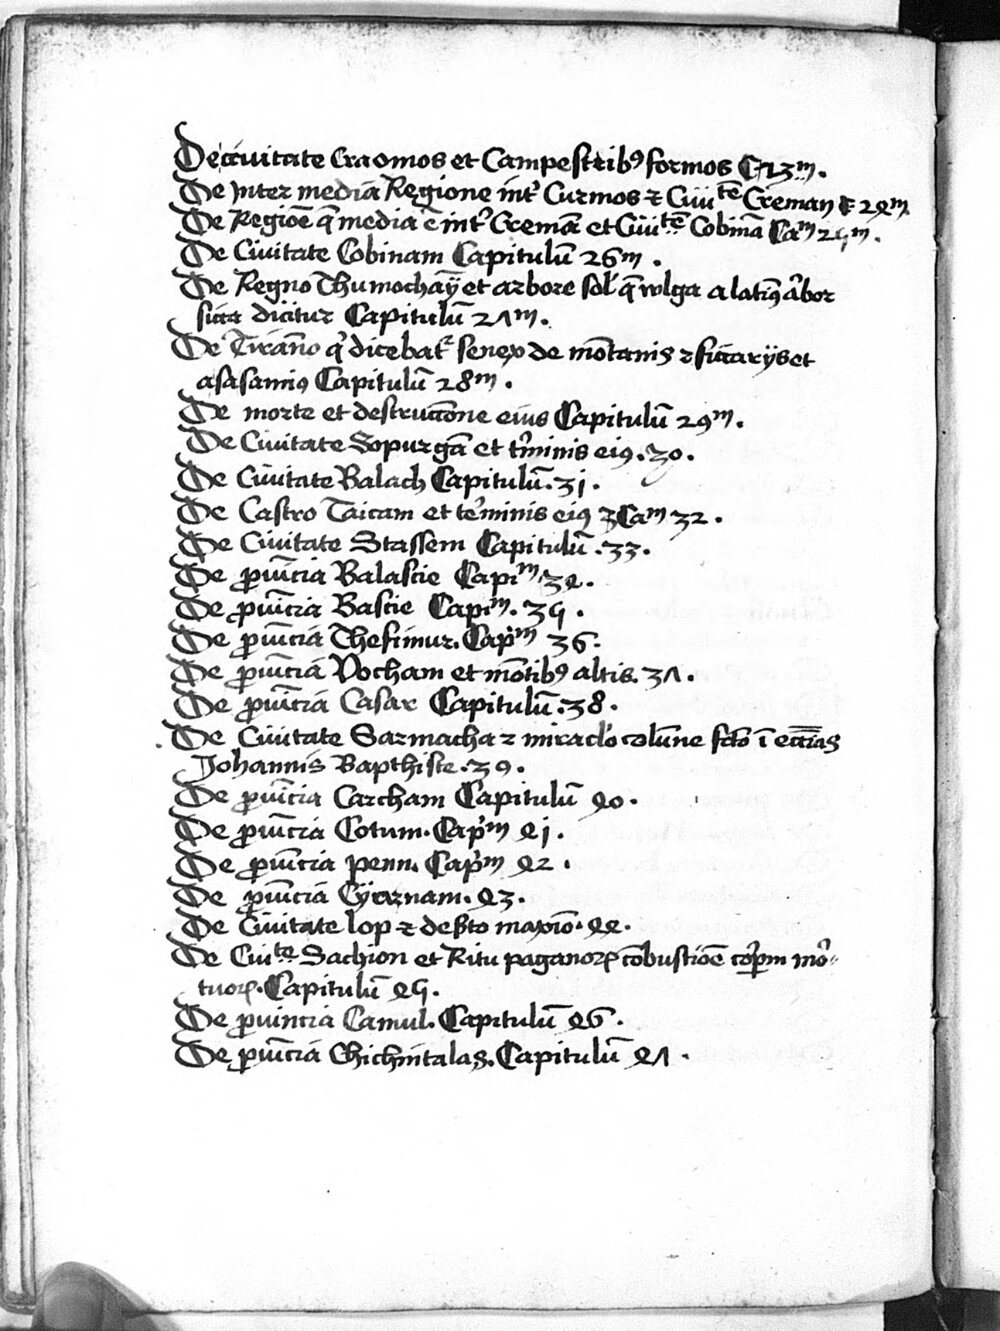 De ciuitate Craomos et Campestribꝯ formos C 23m.
De Inter mediā Regione int̉ Curmos ⁊ Ciuite Creman C 24m
De Regiōe q̄ media ē int̉ Cremā et Ciuite Cobinā Cam 25m.
De Ciuitate Cobinam Capitulū 26m.
De Regno Thumochaȳ et arbore sol̉ q̄ wlga a latiꝯ a̓bor
sicca dicitur Capitulū 27m.
De Tirāno q̓ dicebat̉ senex de mōtanis ⁊ sicarijs et
asasamiꝯ Capitulū 28m.
De morte et destructione eius Capitulū 29m.
De Ciuitate Sopurgā et t̓minis eiꝯ. 30.
De Ciuitate Balach Capitulū. 31.
De Castro Taicam et te̓minis eiꝯ Cam 32.
De Ciuitate Stassem Capitulū. 33.
De ꝓuīcia Balascie Capim 34.
De ꝓuīcia Bascie Capim. 35.
De ꝓuīcia Thesimur. Cap̓m 36.
De ꝓuīcia Vocham et mōtibꝯ altis. 37.
De ꝓuīcia Casar Capitulū. 38.
De Ciuitate Sarmacha ⁊ miraclo colūne fcō ī eccīas
Johannis Bapthiste. 39.
De ꝓuīcia Carcham Capitulū 40.
De ꝓuīcia Cotum. Cap̓m 41.
De ꝓuīcia penn. Cap̓m 42.
De ꝓuīcia Cyarznam. 43.
De Ciuitate lop ⁊ desto maxiō. 44.
De Ciuite Sachion et Ritu paganoꝝ cōbustiōe cor̓pm mo̓
tuoꝝ. Capitulū 45.
De ꝓuintia Camul. Capitulū 46.
De ꝓuīcia Chichintalas. Capitulū 47.